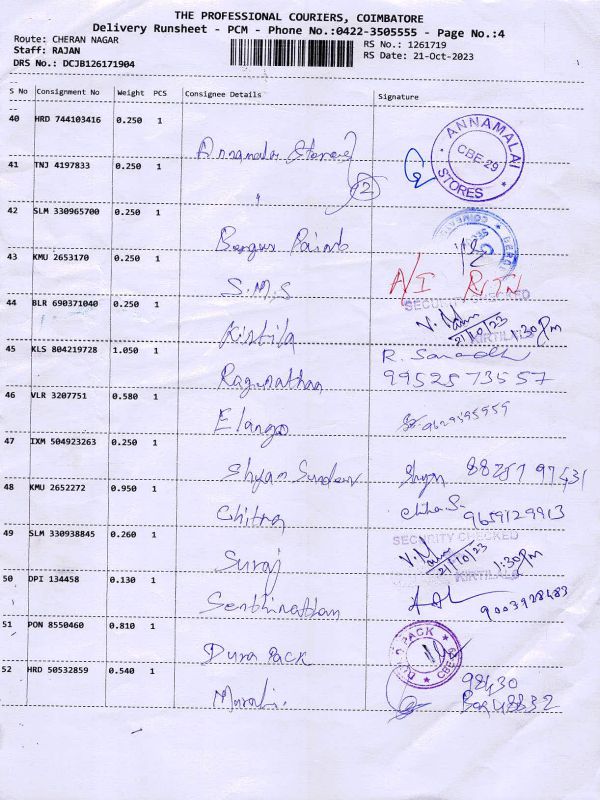 THE PROFESSIONAL COURIERS, COIMBATORE
Delivery Runsheet - PCM - Phone No.:0422-3505555 - Page No.:4
Route: CHERAN NAGAR RS No.: 1261719
Staff: RAJAN RS Date: 21-Oct-2023
DRS No.: DCJB126171904
S No Consignment No Weight PCS Consignee Details Signature
40 HRD 744103416 0.250 1 Annamalai Stores ANNAMALAI STORES CBE-29
41 TNJ 4197833 0.250 1 " 2
42 SLM 330965700 0.250 1 Berger Paints
43 KMU 2653170 0.250 1 S.M.S A/I RTN
SECURITY CHECKED
44 BLR 690371040 0.250 1 Kirtila 21/10/23 1:30pm
45 KLS 804219728 1.050 1 Ragunathan R.
9952573557
46 VLR 3207751 0.580 1 Elango 9629595959
47 IXM 504923263 0.250 1 Shyam Sundar Shyam 88257 97431
48 KMU 2652272 0.950 1 Chitra Chitra S. 9659129913
SECURITY CHECKED
49 SLM 330938845 0.260 1 Suraj 21/10/23 1:30pm
KIRTILALS
50 DPI 134458 0.130 1 Senthinathan 9003928483
51 PON 8550460 0.810 1 Dura Pack DURA PACK CBE-29
52 HRD 50532859 0.540 1 98430